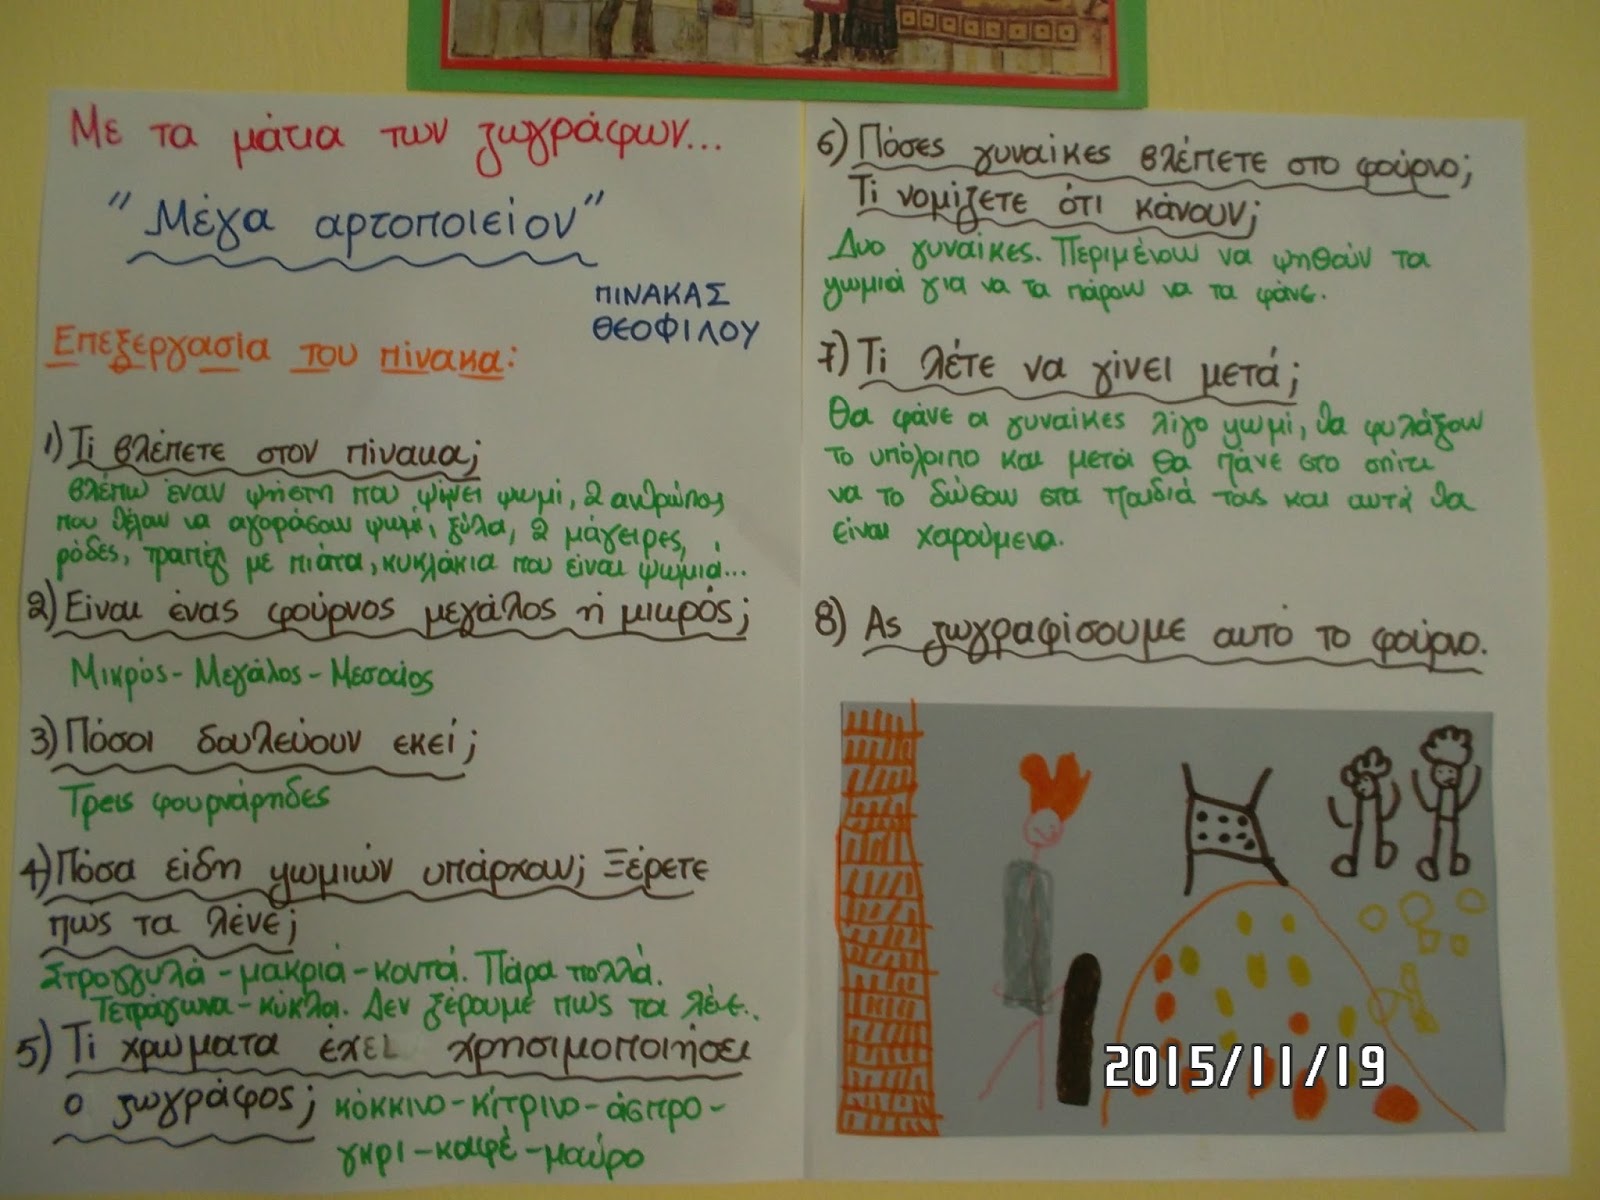 Με τα μάτια των ζωγράφων...
"Μέγα αρτοποιείον"
ΠΙΝΑΚΑΣ
ΘΕΟΦΙΛΟΥ
Επεξεργασία του πίνακα:
1) Τι βλέπετε στον πίνακα;
βλέπω έναν ψήστη που ψήνει ψωμί, 2 ανθρώπος
που θέλουν να αγοράσουν ψωμί, ξύλα, 2 μάγειρες,
ρόδες, τραπέζι με πιάτα, κυκλάκια που είναι ψωμιά...
2) Είναι ένας φούρνος μεγάλος ή μικρός;
Μικρός - Μεγάλος - Μεσαίος
3) Πόσοι δουλεύουν εκεί;
Τρεις φουρνάρηδες
4) Πόσα είδη ψωμιών υπάρχουν; Ξέρετε
πως τα λένε;
Στρογγυλά - μακριά - κοντά. Πάρα πολλά.
Τετράγωνα - κύκλοι. Δεν ξέρουμε πως τα λένε..
5) Τι χρώματα έχει χρησιμοποιήσει
ο ζωγράφος; κόκκινο - κίτρινο - άσπρο -
γκρι - καφέ - μαύρο
6) Πόσες γυναίκες βλέπετε στο φούρνο;
Τι νομίζετε ότι κάνουν;
Δυο γυναίκες. Περιμένουν να ψηθούν τα
ψωμιά για να τα πάρουν να τα φάνε.
7) Τι λέτε να γίνει μετά;
Θα φάνε οι γυναίκες λίγο ψωμί, θα φυλάξουν
το υπόλοιπο και μετά θα πάνε στο σπίτι
να το δώσουν στα παιδιά τους και αυτά θα
είναι χαρούμενα.
8) Ας ζωγραφίσουμε αυτό το φούρνο.
2015/11/19